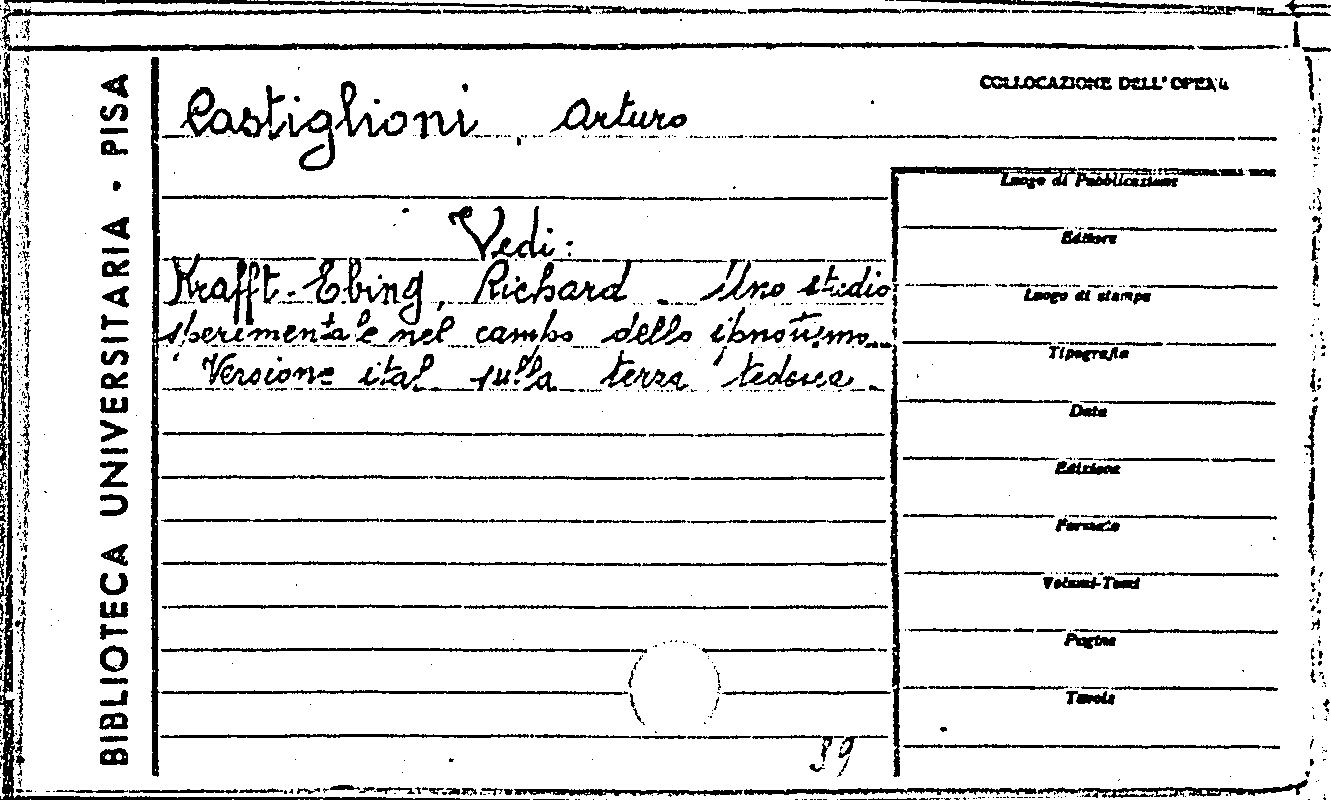 BIBLIOTECA UNIVERSITARIA · PISA
COLLOCAZIONE DELL'OPERA
Castiglioni, Arturo
Vedi:
Krafft-Ebing, Richard. Uno studio
sperimentale nel campo dello ipnotismo.
Versione ital. sulla terza tedesca.
Luogo di Pubblicazione
Editore
Luogo di stampa
Tipografia
Data
Edizione
Formato
Volumi-Tomi
Pagine
Tavole
39